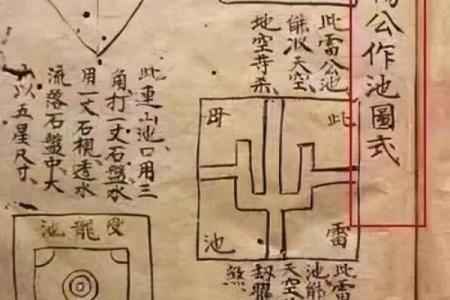 公作池圖式
此雷公池
能収天空、
地空杀、
此雷
母池
此雷
池能
天空
劫
煞
此連山池口用三
角打一丈石盤水
用一丈石梘透水
流落石盤中、大
以五星尺寸、
受龍池